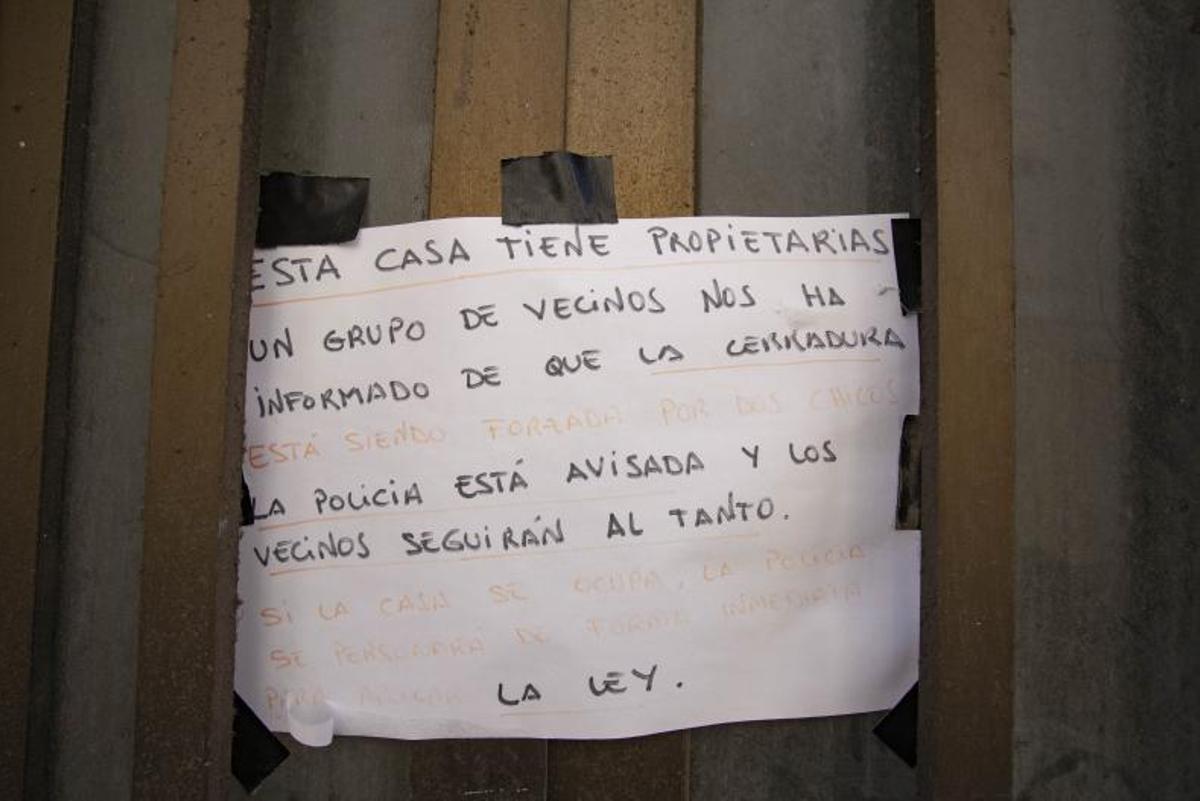 ESTA CASA TIENE PROPIETARIAS
UN GRUPO DE VECINOS NOS HA
INFORMADO DE QUE LA CERRADURA
ESTÁ SIENDO FORZADA POR DOS CHICOS
LA POLICIA ESTÁ AVISADA Y LOS
VECINOS SEGUIRÁN AL TANTO.
SI LA CASA SE OCUPA, LA POLICIA
SE PERSONARÁ DE FORMA INMEDIATA
PARA APLICAR LA LEY.